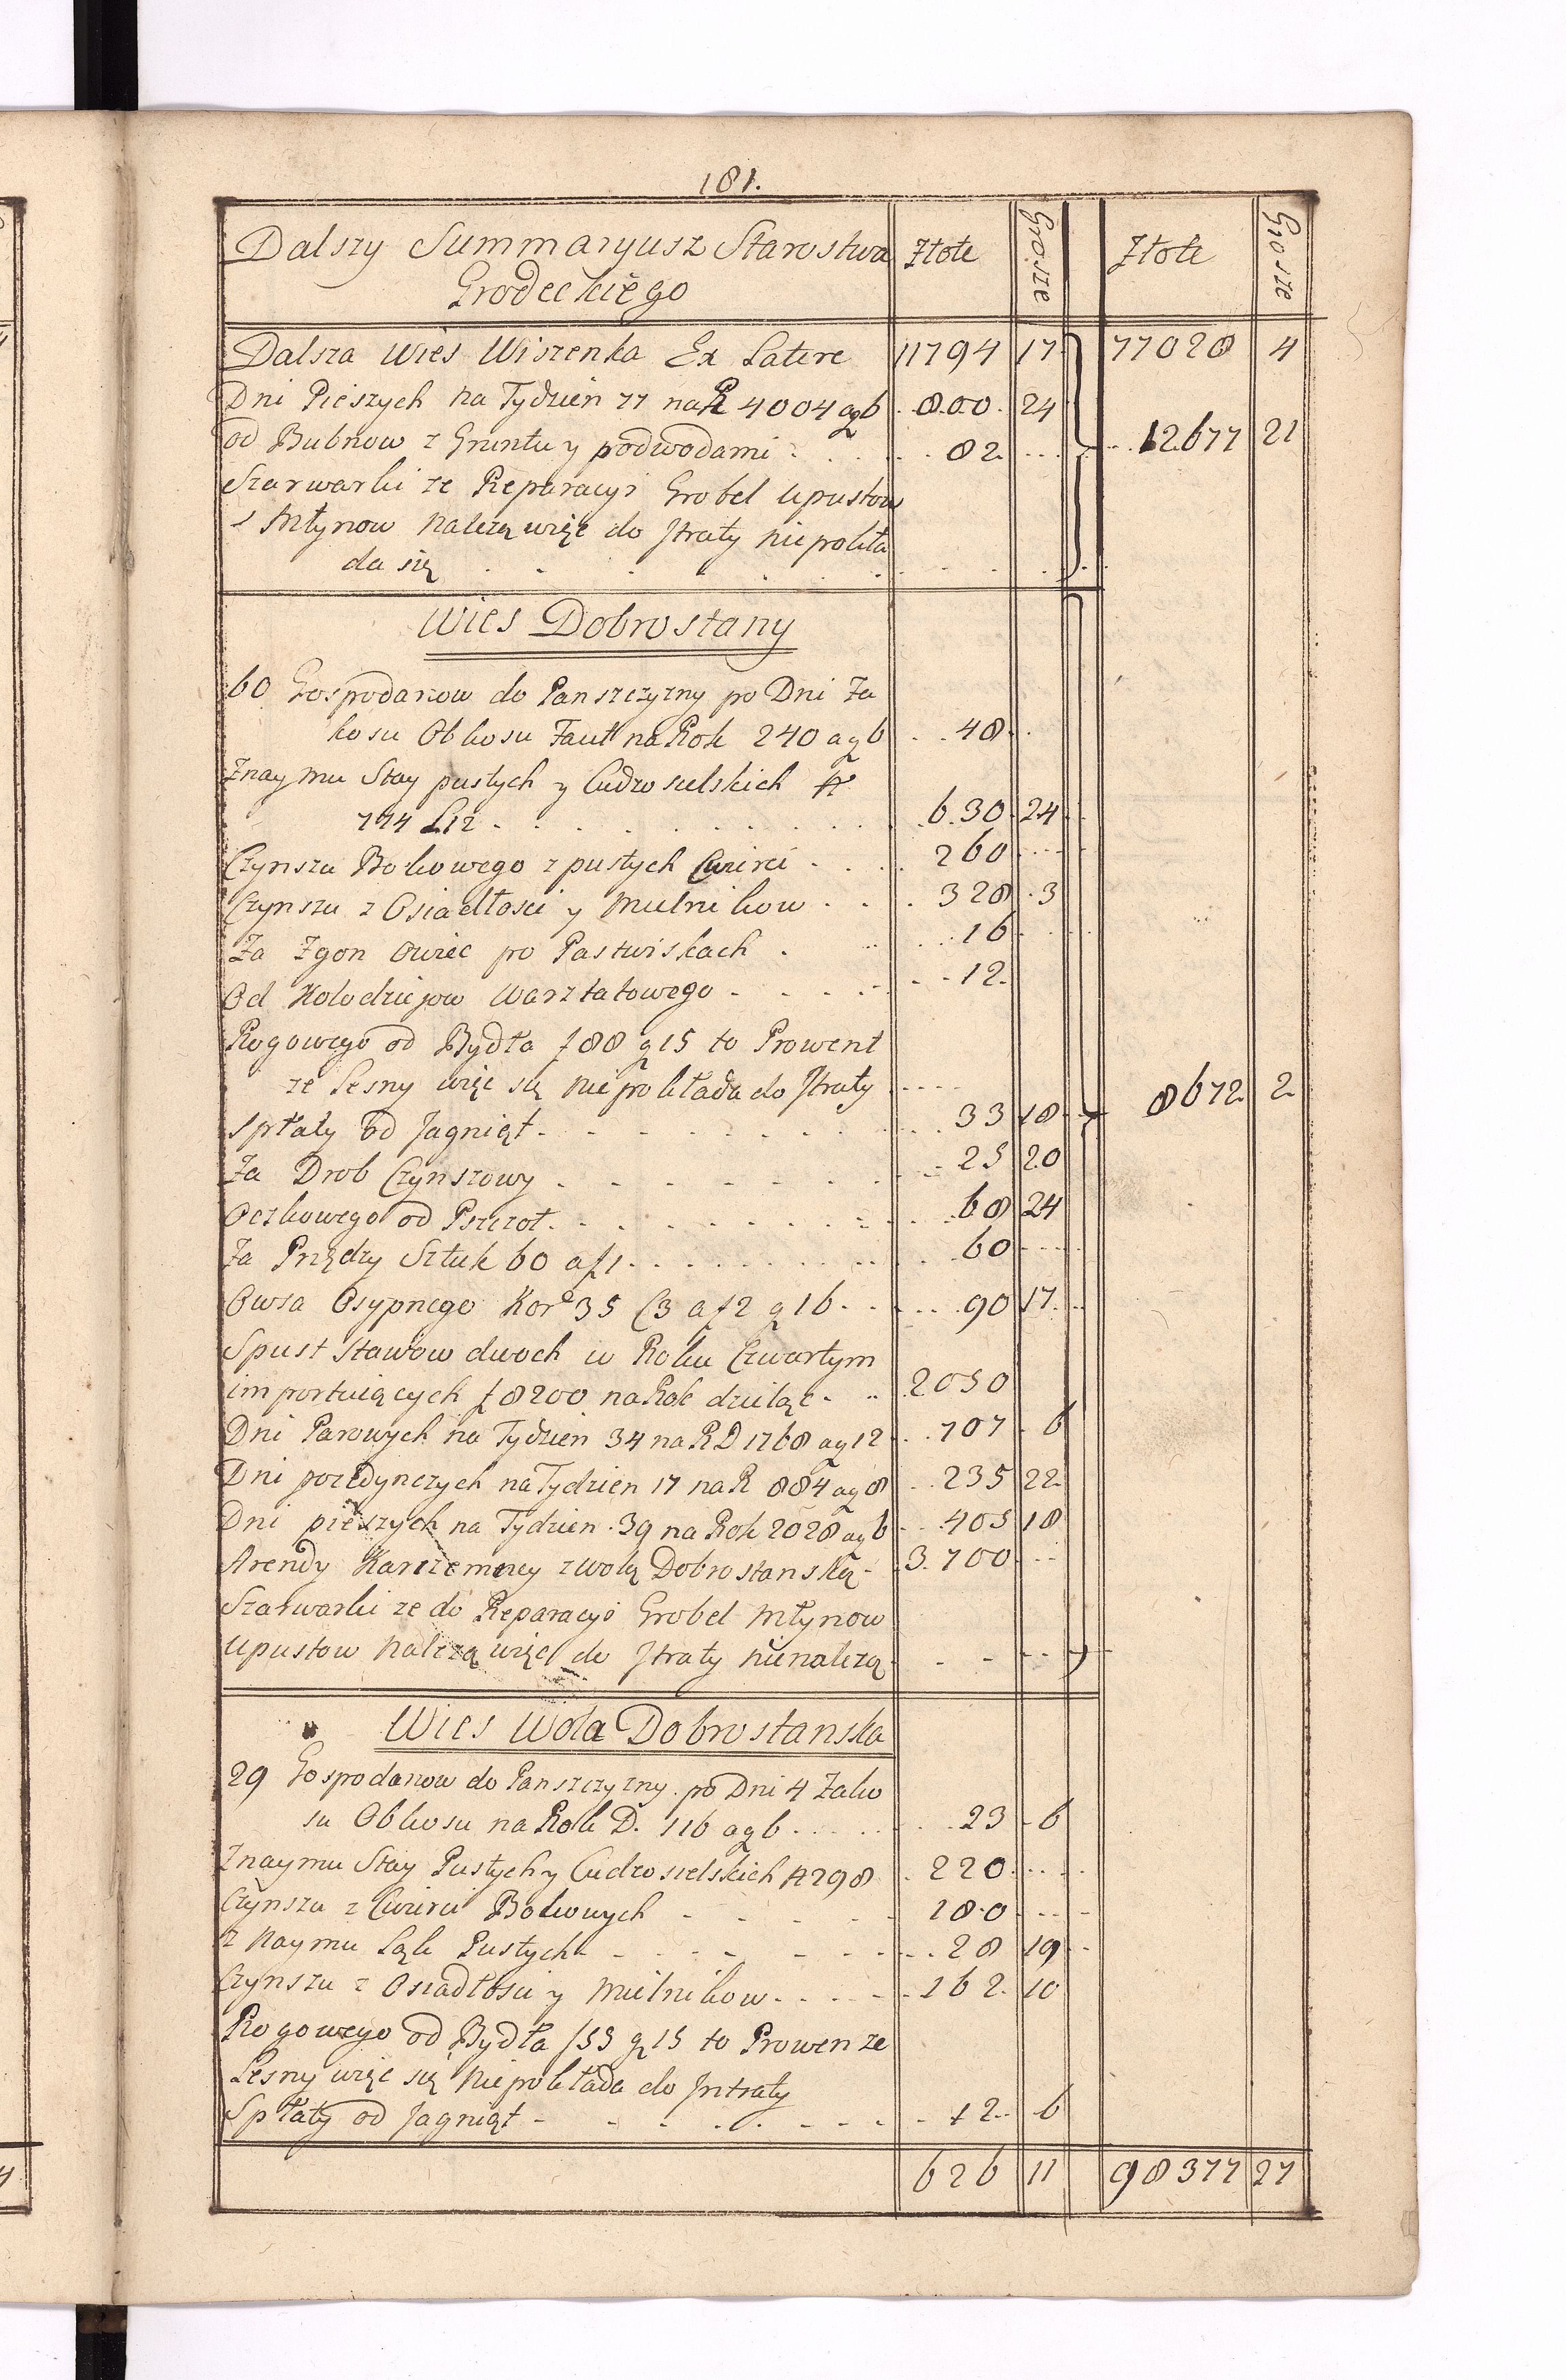 181.
Dalszy Summaryusz Starostwa Złote Grosze Złote Grosze
Grodeckiego
Dalsza Wies Wiszenka Ex Latere 11794 17 77028 4
Dni Pieszych na Tydzien 77 na R 4004 a g 6 800 24
od Bubnow z Gruntu y podwodami 82 12677 21
Szarwarki ze Reparacyi Grobel Upustow
i Młynow należą więc do Jtraty niepokła
da się
Wies Dobrostany
60 Gospodarzow do Panszczyzny po Dni Za
kosu Obkosu Facit na Rok 240 a g 6 48
Znaymu Stay pustych y Cudzosielskich N
774 Liz 630 24
Czynszu Bokowego z pustych Cwirci 260
Czynszu z Osiadłosci y Mielnikow 328 3
Za Zgon Owiec po Pastwiskach 16
Od Kolodziejow Warsztatowego 12
Rogowego od Bydła f 88 g 15 to Prowent
ze Lesny więc się niepokłada do Jtraty
Spłaty od Jagniąt 33 18
Za Drob Czynszowy 25 20
Oczkowego od Pszczoł 68 24
Za Przędzy Sztuk 60 a f 1 60
Owsa Osypnego Kor 35 C3 a f 2 g 16 90 17
Spust Stawow dwoch w Roku Czwartym
importuiących f 8200 na Rok dzieląc 2050
Dni Parowych na Tydzien 34 na R D 1768 a g 12 707 6
Dni poiedynczych na Tydzien 17 na R 884 a g 8 235 22
Dni pieszych na Tydzien 39 na Rok 2028 a g 6 405 18
Arendy Karczemney z Wolą Dobrostanską 3700
Szarwarki ze do Reparacyi Grobel Młynow
Upustow należą więc do Jtraty nienależą
8672 2
Wies Wola Dobrostanska
29 Gospodarzow do Panszczyzny po Dni 4 Zako
su Obkosu na Rok D. 116 a g 6 23 6
Znaymu Stay Pustych y Cudzosielskich N 298 220
Czynszu z Cwirci Bokowych 180
z Naymu Łąk Pustych 28 19
Czynszu z Osiadłosci y Mielnikow 162 10
Rogowego od Bydła f 53 g 15 to Prowen ze
Lesny więc się niepokłada do Jntraty
Spłaty od Jagniąt 12 6
626 11 98377 27